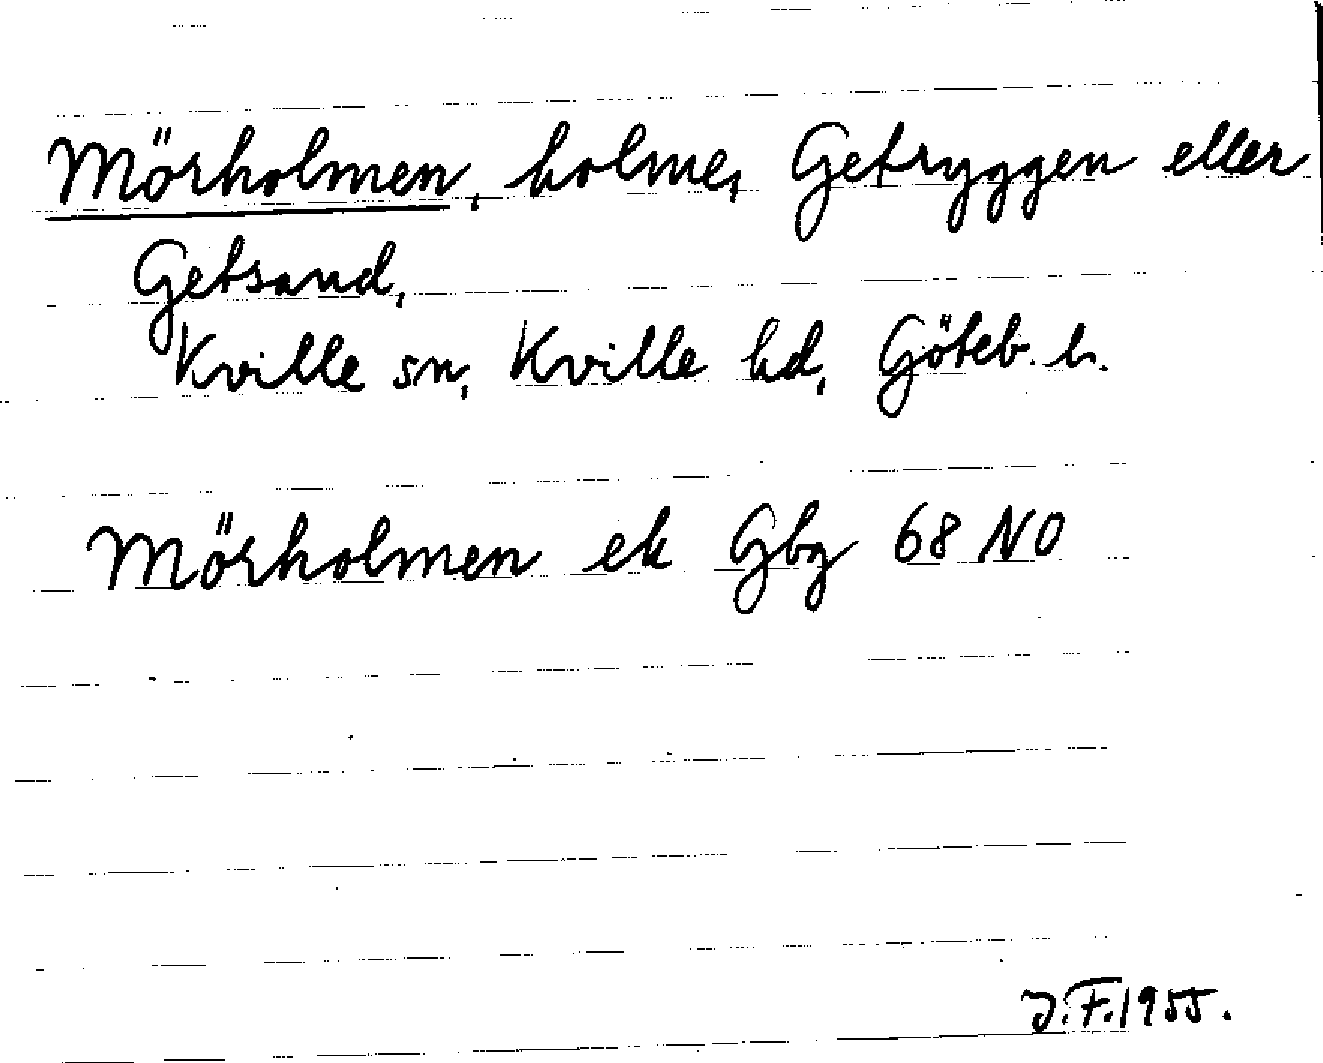 Mörholmen, holme, Getryggen eller
Getsand,
Kville sn, Kville hd, Göteb. l.
Mörholmen ek Gbg 68 NO
J.F. 1955.